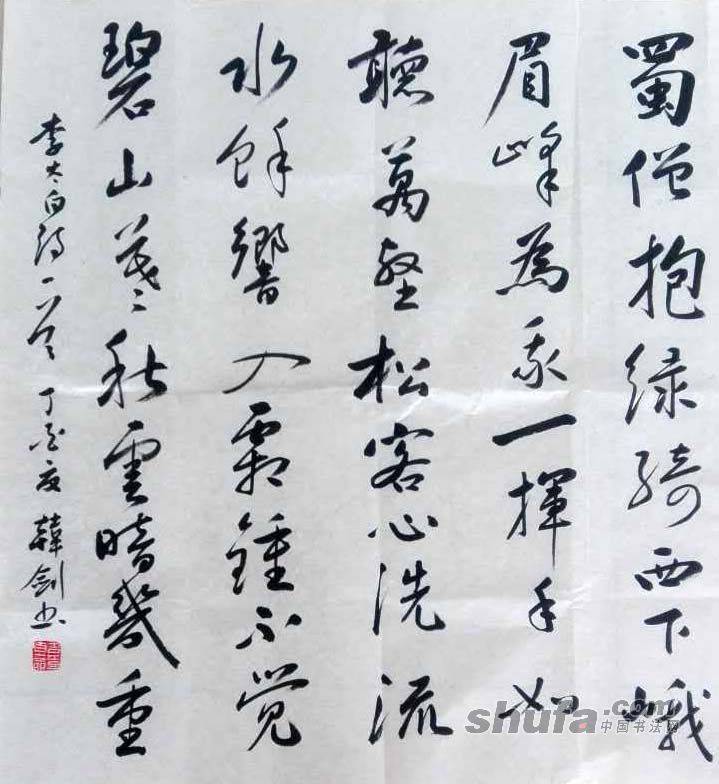 蜀僧抱绿绮西下峨
眉峰為我一揮手如
聽萬壑松客心洗流
水餘響入霜鍾不觉
碧山暮秋雲暗幾重
李太白诗一首 丁酉夏 韓劍书
shufa.com
中国书法网